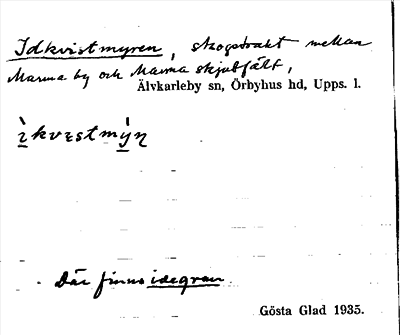 Idkvistmyren, skogstrakt mellan
Marma by och Marma skjutfält,
Älvkarleby sn, Örbyhus hd, Upps. l.
ı̀kvɛstmý̀n̥
Där finns idegran.
Gösta Glad 1935.